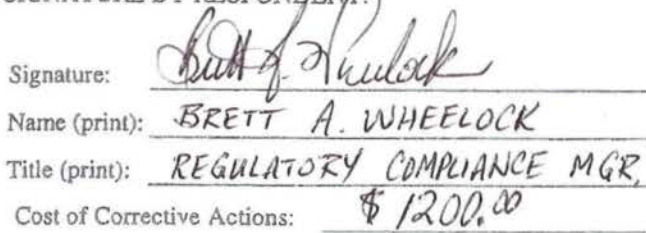 SIGNATURE BY RESPONDENT:
Signature: Brett A. Wheelock
Name (print): BRETT A. WHEELOCK
Title (print): REGULATORY COMPLIANCE MGR.
Cost of Corrective Actions: $ 1200.00